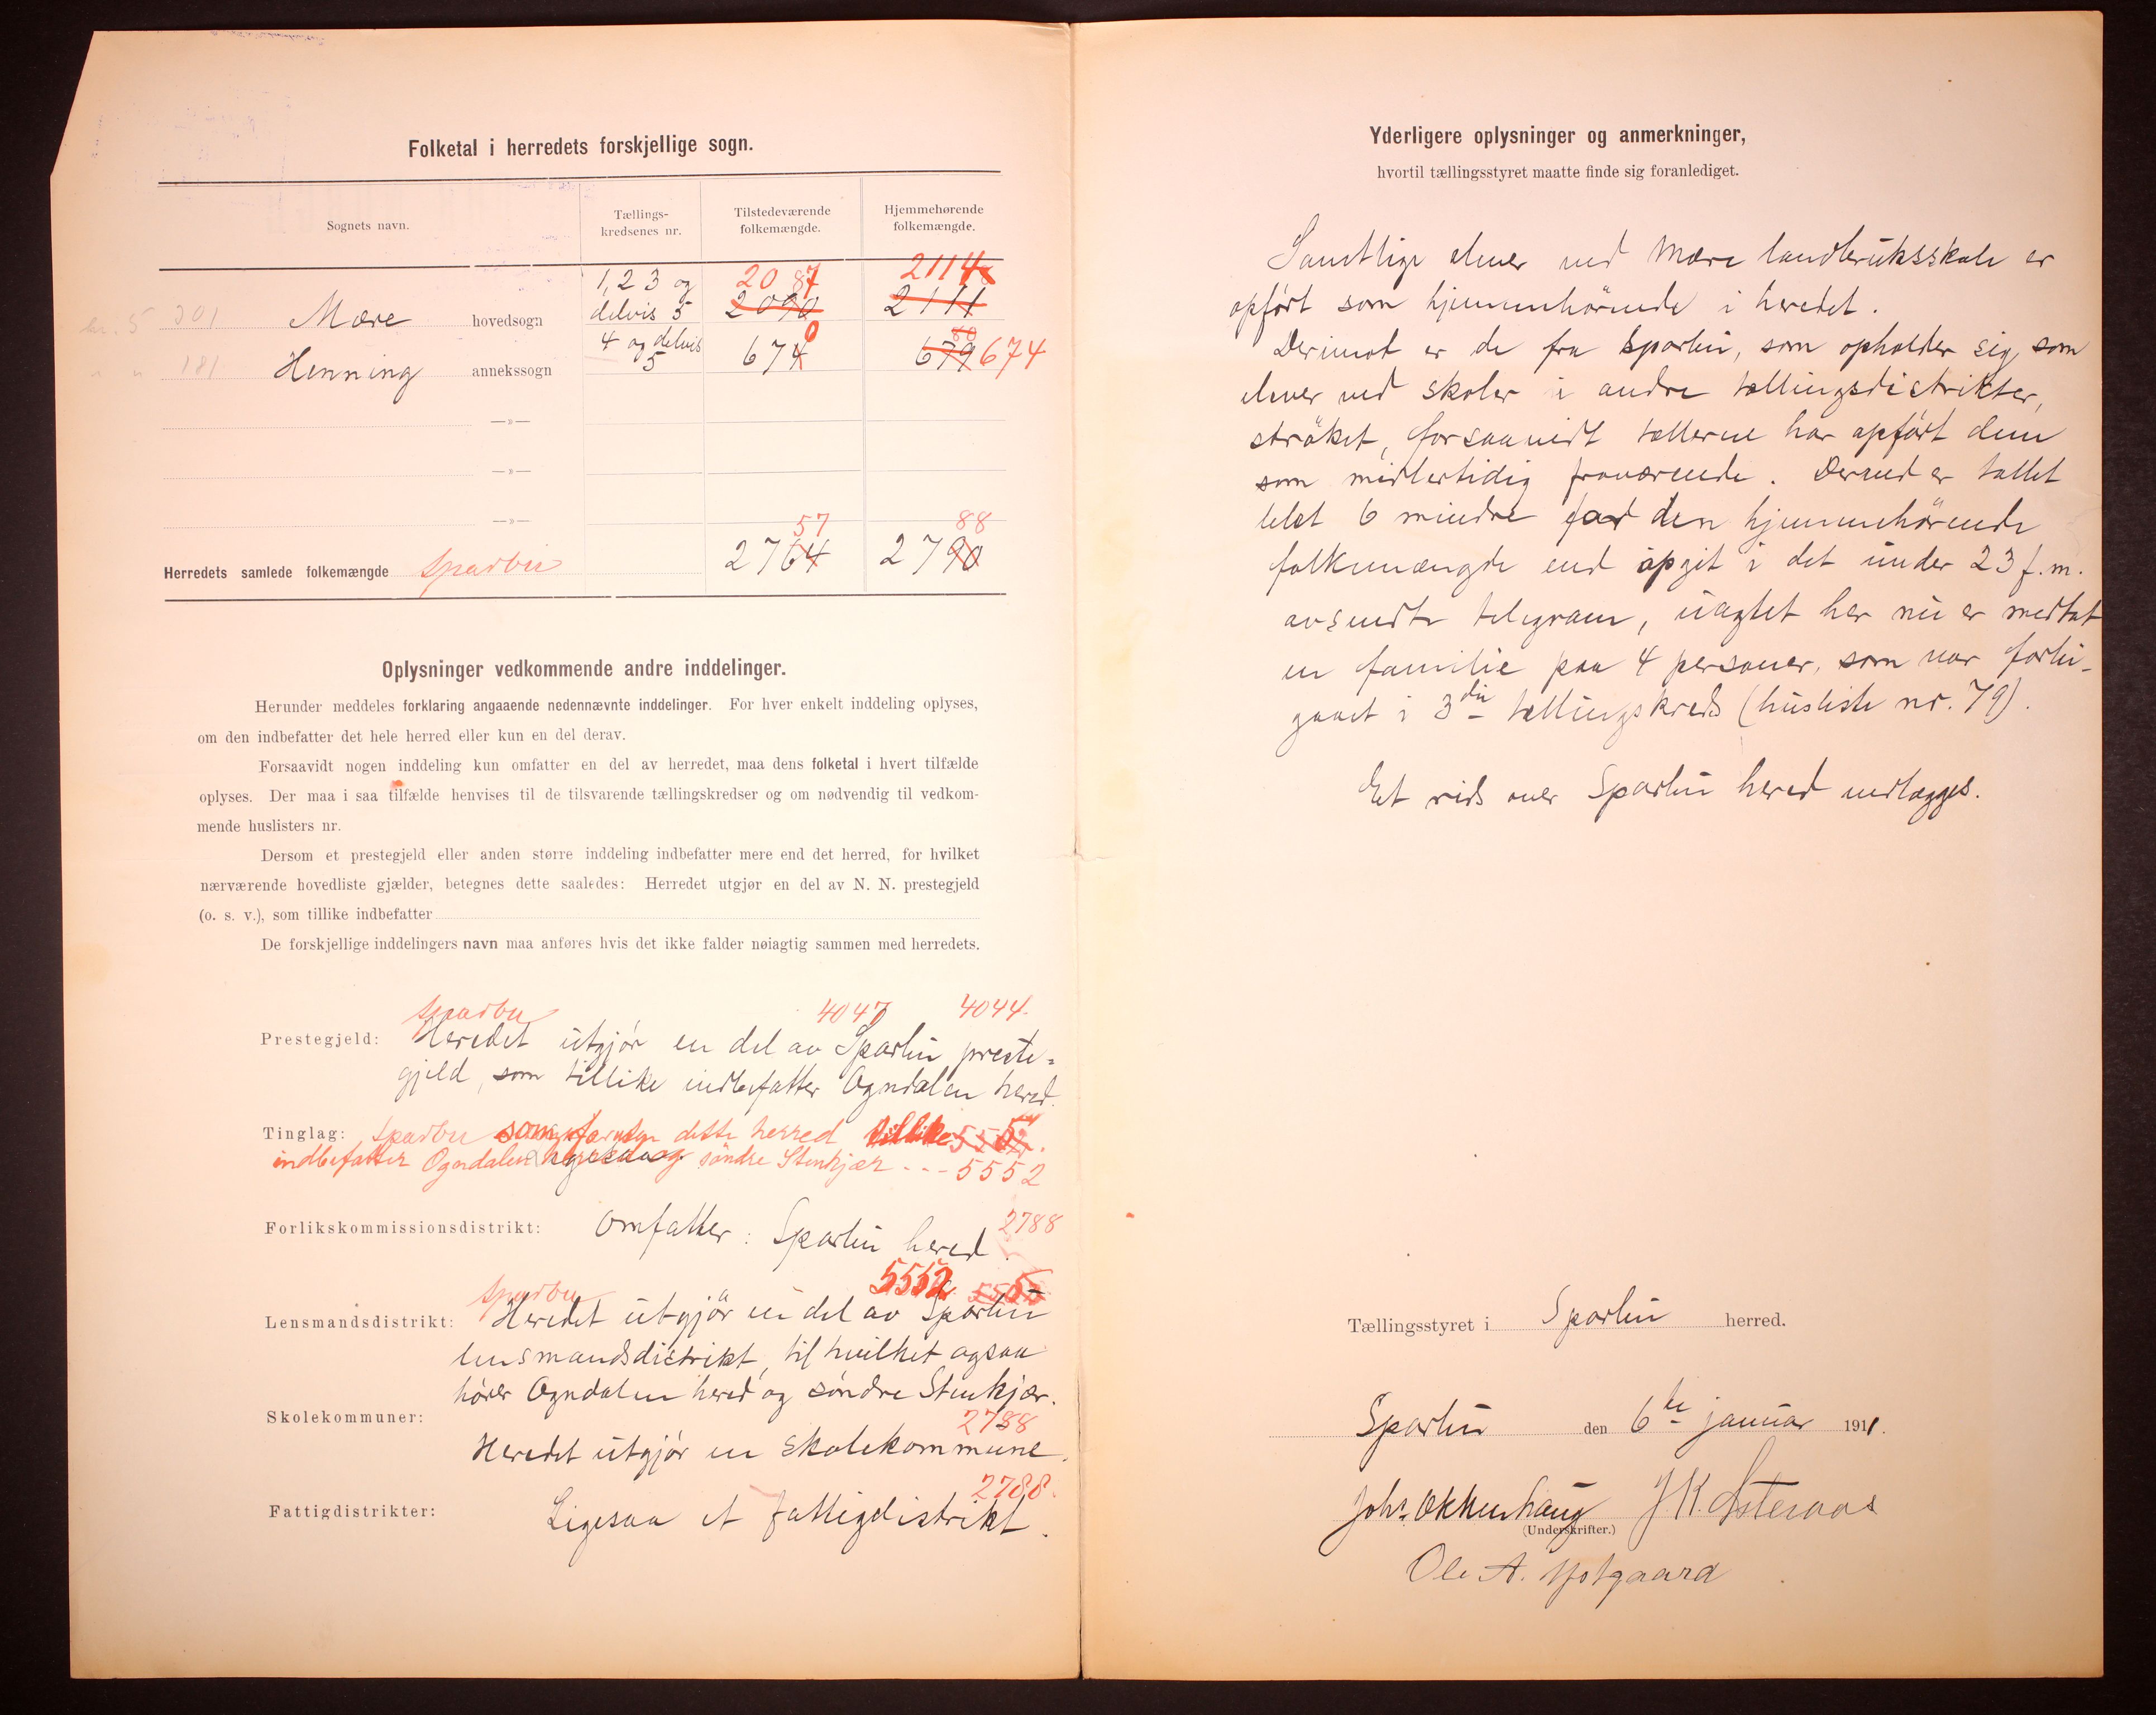 Folketal i herredets forskjellige sogn.
Sognets navn.
Tællings-
kredsenes nr.
Tilstedeværende
folkemængde.
Hjemmehørende
folkemængde.
1, 2 3 og
delvis 5
2087
2090
2114
2111
301
Mære hovedsogn
4 og delvis
5
674
0
80
679 674
181
Henning annekssogn
—»—
—»—
—»—
57
88
Herredets samlede folkemængde Sparbu 2764 2790
Oplysninger vedkommende andre inddelinger.
Herunder meddeles forklaring angaaende nedennævnte inddelinger. For hver enkelt inddeling oplyses,
om den indbefatter det hele herred eller kun en del derav.
Forsaavidt nogen inddeling kun omfatter en del av herredet, maa dens folketal i hvert tilfælde
oplyses. Der maa i saa tilfælde henvises til de tilsvarende tællingskredser og om nødvendig til vedkom-
mende huslisters nr.
Dersom et prestegjeld eller anden større inddeling indbefatter mere end det herred, for hvilket
nærværende hovedliste gjælder, betegnes dette saaledes: Herredet utgjør en del av N. N. prestegjeld
(o. s. v.), som tillike indbefatter
De forskjellige inddelingers navn maa anføres hvis det ikke falder nøiagtig sammen med herredets.
Sparbu 4047 4044.
Prestegjeld: Heredet utgjör en del av Sparbu preste=
gjeld, som tillike indbefatter Ogndalen hered.
Tinglag: Sparbu som dette herred tillike
indbefatter Ogndalen og söndre Stenkjær - - - 5552
2788
Forlikskommissionsdistrikt: Omfatter: Sparbu hered.
Sparbu 5552
Lensmandsdistrikt: Heredet utgjör en del av Sparbu
lensmandsdistrikt, til hvilket ogsaa
hörer Ogndalen hered og söndre Stenkjær.
Skolekommuner: 2788
Heredet utgjör en skolekommune.
2788.
Fattigdistrikter: Ligesaa et fattigdistrikt.
Yderligere oplysninger og anmerkninger,
hvortil tællingsstyret maatte finde sig foranlediget.
Samtlige elever ved Mære landbruksskole er
opfört som hjemmehörende i heredet.
Derimot er de fra Sparbu, som opholder sig som
elever ved skoler i andre tællingsdistrikter,
ströket, forsaavidt tællerne har opfört dem
som midlertidig fraværende. Derved er tallet
blet 6 mindre for den hjemmehörende
folkemængde end opgit i det under 23 f. m.
avsendte telegram, uagtet her nu er medtat
en familie paa 4 personer, som var forbi-
gaaet i 3die tællingskreds (husliste nr. 79).
Et rids over Sparbu hered vedlægges.
Tællingsstyret i Sparbu herred.
Sparbu den 6te januar 1911.
Johs. Okkenhaug J K. Østeraas
(Underskrifter.)
Ole A. Hofgaard